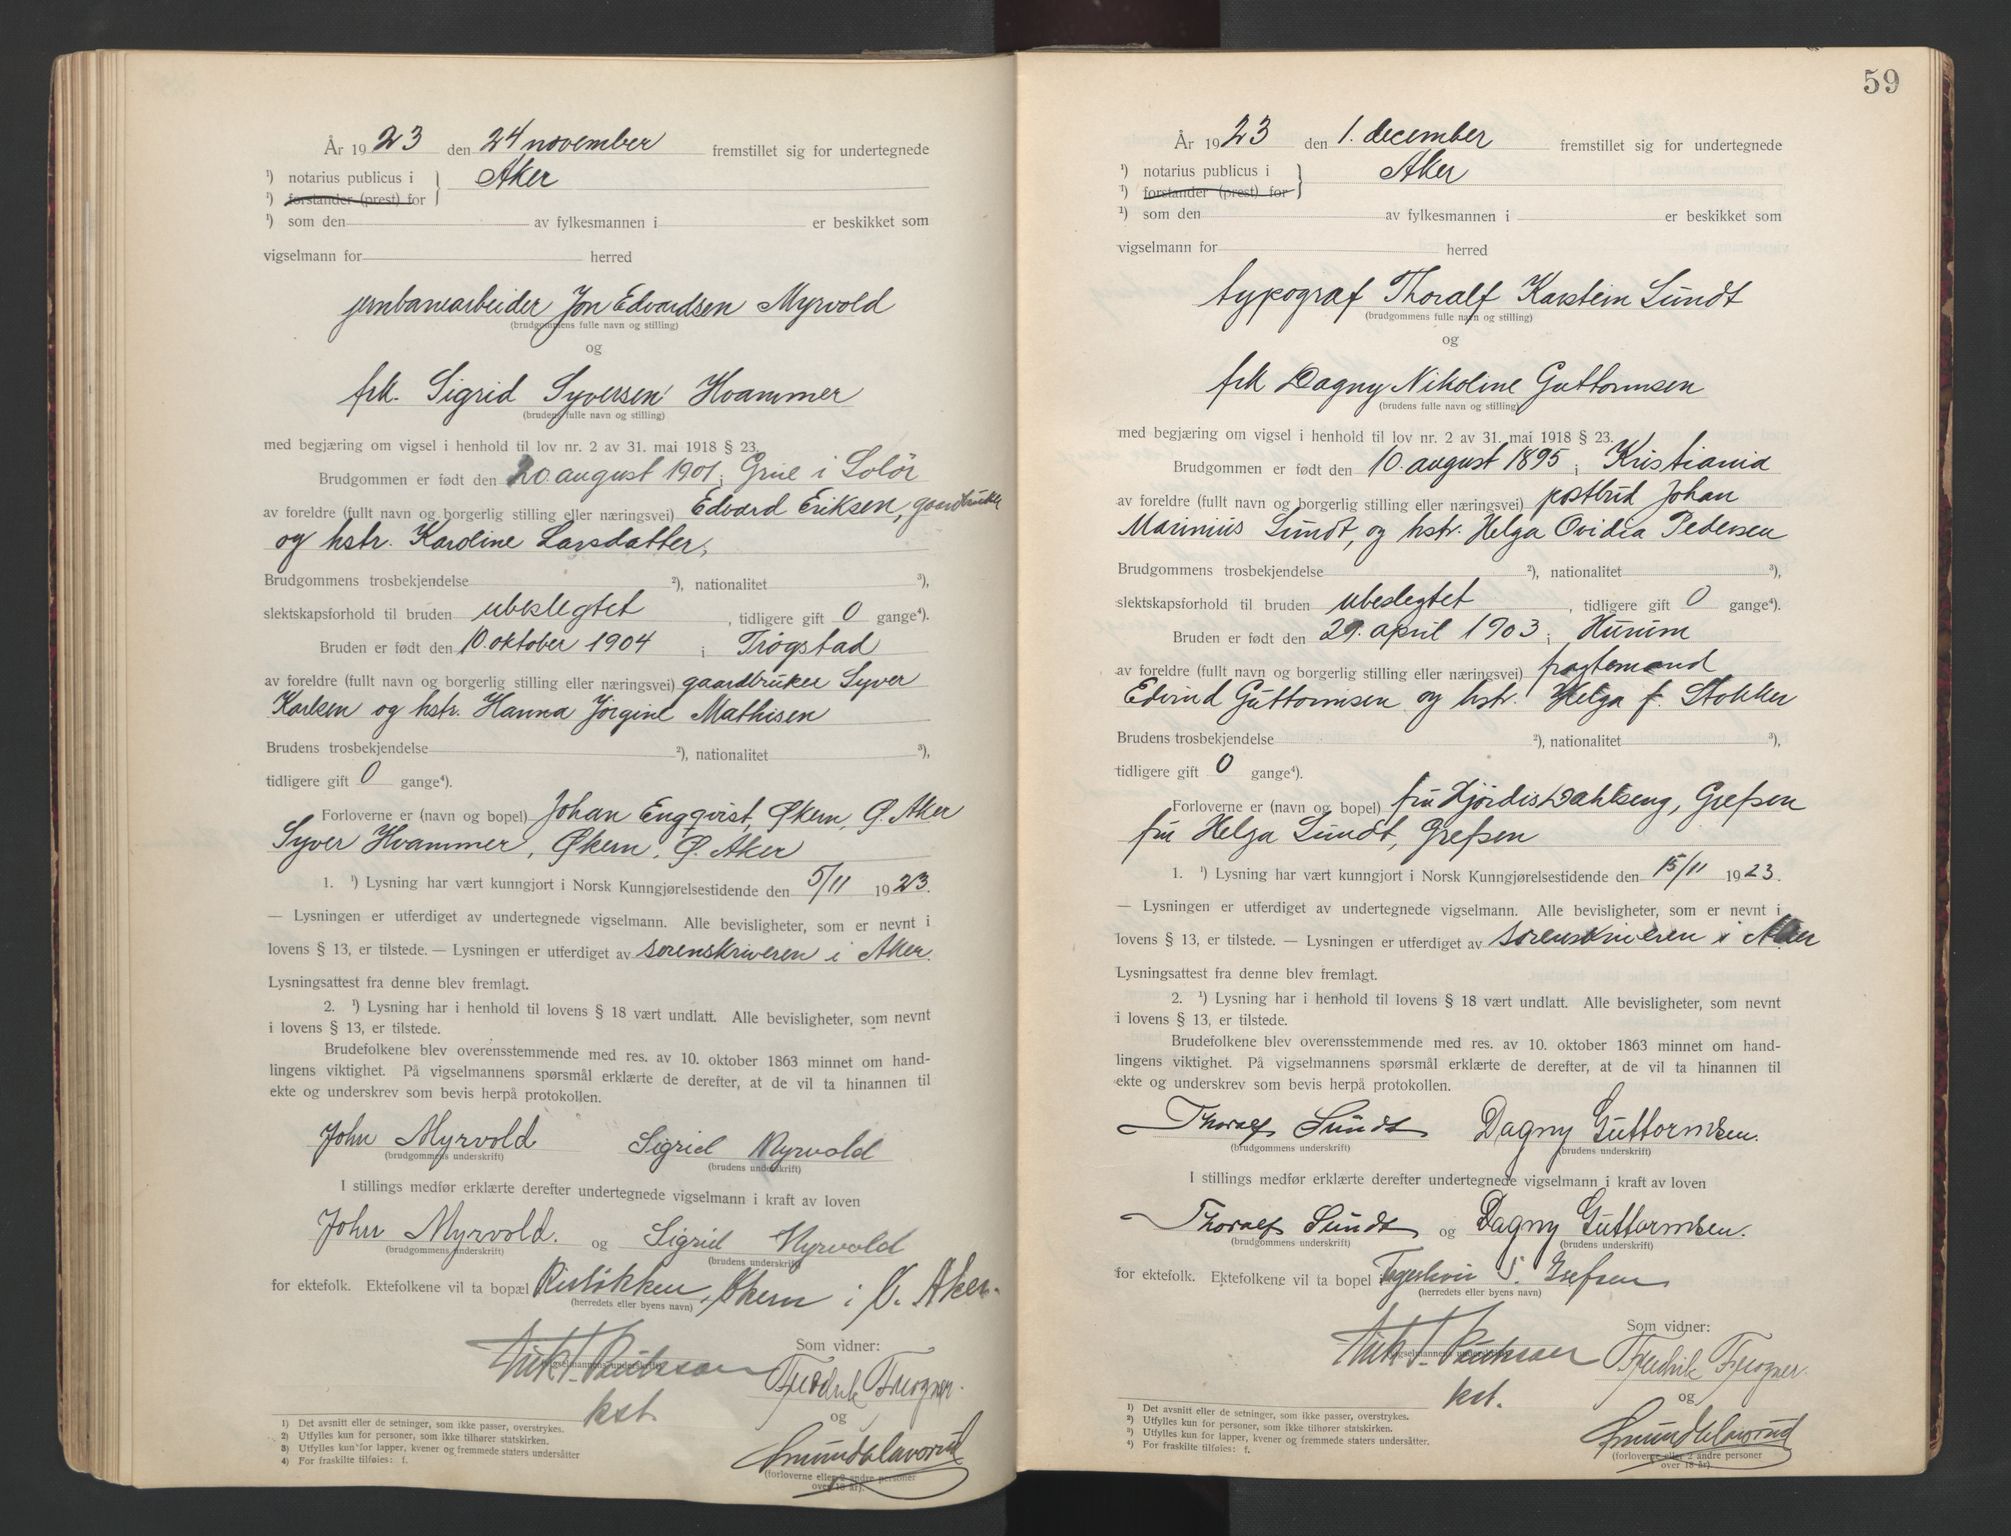 År 1923 den 24 november fremstillet sig for undertegnede
¹) notarius publicus i } Aker
¹) forstander (prest) for
¹) som den av fylkesmannen i er beskikket som
vigselmann for herred
jernbanearbeider Jon Edvardsen Myrvold
(brudgommens fulle navn og stilling)
og
frk. Sigrid Syversen Hvammer
(brudens fulle navn og stilling)
med begjæring om vigsel i henhold til lov nr. 2 av 31. mai 1918 § 23.
Brudgommen er født den 20. august 1901 i Grue i Solör
av foreldre (fullt navn og borgerlig stilling eller næringsvei) Edvard Eriksen, gaardbruker
og hstr. Karoline Larsdatter,
Brudgommens trosbekjendelse ²), nationalitet ³),
slektskapsforhold til bruden ubeslegtet, tidligere gift 0 gange⁴).
Bruden er født den 10. oktober 1904 i Trøgstad
av foreldre (fullt navn og borgerlig stilling eller næringsvei) gaardbruker Syver
Karlsen og hstr. Hanna Jörgine Mathisen
Brudens trosbekjendelse ²), nationalitet ³),
tidligere gift 0 gange⁴).
Forloverne er (navn og bopel) Johan Engqvist, Økern, Ø. Aker
Syver Hvammer, Økern, Ø. Aker
1. ¹) Lysning har vært kunngjort i Norsk Kunngjørelsestidende den 5/11 1923.
— Lysningen er utferdiget av undertegnede vigselmann. Alle bevisligheter, som er nevnt i
lovens § 13, er tilstede. — Lysningen er utferdiget av sorenskriveren i Aker.
Lysningsattest fra denne blev fremlagt.
2. ¹) Lysning har i henhold til lovens § 18 vært undlatt. Alle bevisligheter, som nevnt
i lovens § 13, er tilstede.
Brudefolkene blev overensstemmende med res. av 10. oktober 1863 minnet om hand-
lingens viktighet. På vigselmannens spørsmål erklærte de derefter, at de vil ta hinannen til
ekte og underskrev som bevis herpå protokollen.
John Myrvold Sigrid Myrvold
(brudgommens underskrift) (brudens underskrift)
I stillings medfør erklærte derefter undertegnede vigselmann i kraft av loven
John Myrvold. og Sigrid Myrvold
(brudgommens underskrift) (brudens underskrift)
for ektefolk. Ektefolkene vil ta bopæl Risløkken, Økern i Ø. Aker.
(herredets eller byens navn)
Som vidner:
(vigselmannens underskrift) Fredrik Frogner.
kst. og
(forloverne eller 2 andre personer
over 18 år).
1) Det avsnitt eller de setninger, som ikke passer, overstrykes.
2) Utfylles kun for personer, som ikke tilhører statskirken.
3) Utfylles kun for lapper, kvener og fremmede staters undersåtter
4) For fraskilte tilføies: f.
59
År 1923 den 1. december fremstillet sig for undertegnede
¹) notarius publicus i } Aker
¹) forstander (prest) for
¹) som den av fylkesmannen i er beskikket som
vigselmann for herred
typograf Thoralf Karstein Sundt
(brudgommens fulle navn og stilling)
og
frk Dagny Nikoline Guttormsen
(brudens fulle navn og stilling)
med begjæring om vigsel i henhold til lov nr. 2 av 31. mai 1918 § 23.
Brudgommen er født den 10. august 1895 i Kristiania
av foreldre (fullt navn og borgerlig stilling eller næringsvei) postbud Johan
Marinius Sundt, og hstr. Helga Ovidia Pedersen
Brudgommens trosbekjendelse ²), nationalitet ³),
slektskapsforhold til bruden ubeslegtet, tidligere gift 0 gange⁴).
Bruden er født den 29. april 1903 i Hurum
av foreldre (fullt navn og borgerlig stilling eller næringsvei) fragtemand
Edvind Guttormsen og hstr. Helga f. Stokker
Brudens trosbekjendelse ²), nationalitet ³),
tidligere gift 0 gange⁴).
Forloverne er (navn og bopel) fru Hjördis Dahlseng, Grefsen
fru Helga Sundt, Grefsen
1. ¹) Lysning har vært kunngjort i Norsk Kunngjørelsestidende den 15/11 1923.
— Lysningen er utferdiget av undertegnede vigselmann. Alle bevisligheter, som er nevnt i
lovens § 13, er tilstede. — Lysningen er utferdiget av sorenskriveren i Aker
Lysningsattest fra denne blev fremlagt.
2. ¹) Lysning har i henhold til lovens § 18 vært undlatt. Alle bevisligheter, som nevnt
i lovens § 13, er tilstede.
Brudefolkene blev overensstemmende med res. av 10. oktober 1863 minnet om hand-
lingens viktighet. På vigselmannens spørsmål erklærte de derefter, at de vil ta hinannen til
ekte og underskrev som bevis herpå protokollen.
Thoralf Sundt Dagny Guttormsen.
(brudgommens underskrift) (brudens underskrift)
I stillings medfør erklærte derefter undertegnede vigselmann i kraft av loven
Thoralf Sundt og Dagny Guttormsen.
(brudgommens underskrift) (brudens underskrift)
for ektefolk. Ektefolkene vil ta bopel Grefsen
(herredets eller byens navn)
Som vidner:
(vigselmannens underskrift) Fredrik Frogner.
kst. og
(forloverne eller 2 andre personer
over 18 år).
1) Det avsnitt eller de setninger, som ikke passer, overstrykes.
2) Utfylles kun for personer, som ikke tilhører statskirken.
3) Utfylles kun for lapper, kvener og fremmede staters undersåtter.
4) For fraskilte tilføies: f.